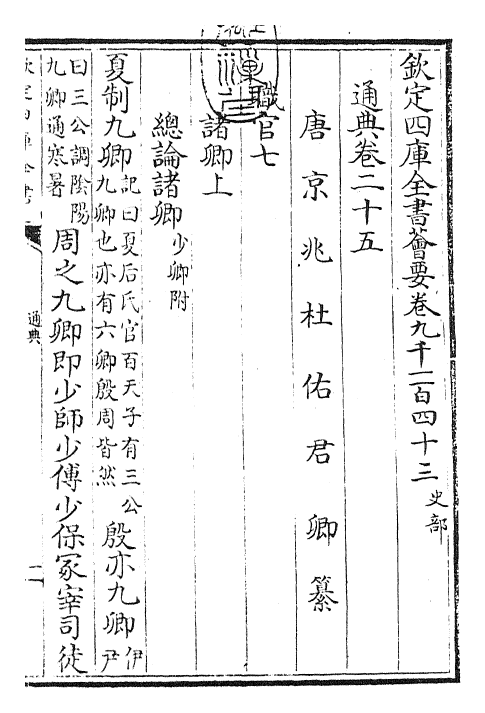 欽定四庫全書薈要卷九千二百四十三 史部
通典卷二十五
唐京兆杜佑君卿纂
職官七
諸卿上
總論諸卿 少卿附
夏制九卿 記曰夏后氏官百天子有三公
九卿也亦有六卿殷周皆然 殷亦九卿 伊尹
曰三公調陰陽
九卿通寒暑 周之九卿即少師少傅少保冢宰司徒
欽定四庫全書
通典
一